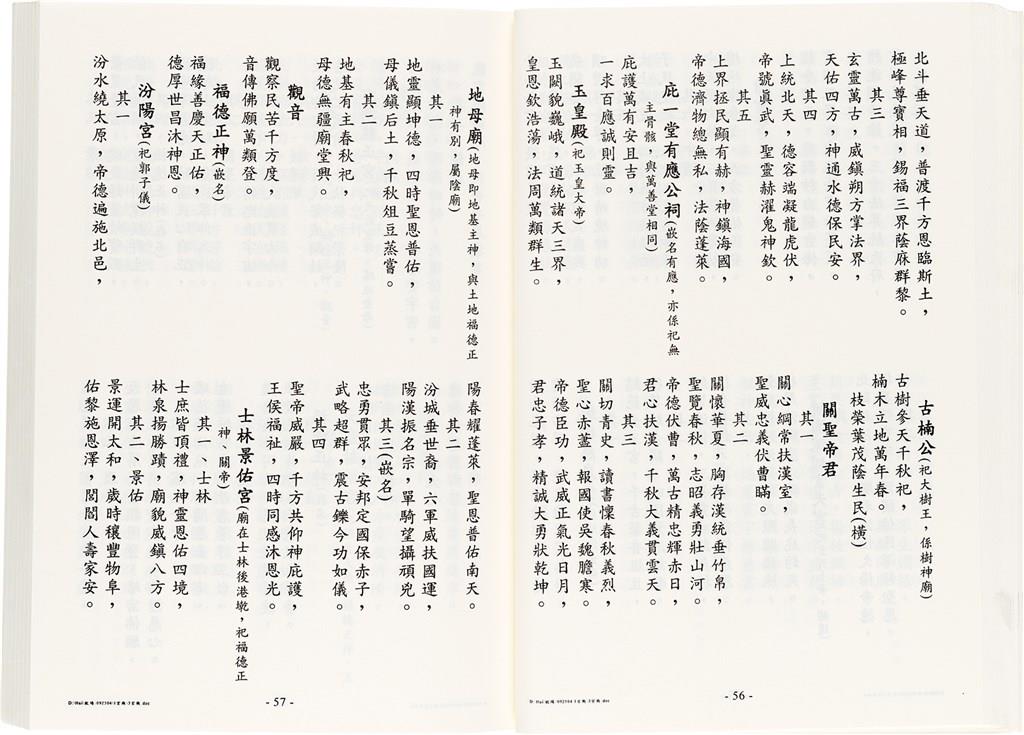 北斗垂天道，普渡千方恩臨斯土，
極峰尊寶相，錫福三界蔭庥群黎。
其三
玄靈萬古，威鎮朔方掌法界，
天佑四方，神通水德保民安。
其四
上統北天，德容端凝龍虎伏，
帝號真武，聖靈赫濯鬼神欽。
其五
上界拯民顯有赫，神鎮海國，
帝德濟物總無私，法蔭蓬萊。
庇一堂有應公祠(嵌名有應，亦係祀無
主骨骸，與萬善堂相同)
庇護萬有安且吉，
一求百應誠則靈。
玉皇殿(祀玉皇大帝)
玉闕貌巍峨，道統諸天三界，
皇恩欽浩蕩，法周萬類群生。
古楠公(祀大樹王，係樹神廟)
古樹參天千秋祀，
楠木立地萬年春。
枝榮葉茂蔭生民(橫)
關聖帝君
其一
關心綱常扶漢室，
聖威忠義伏曹瞞。
其二
關懷華夏，胸存漢統垂竹帛，
聖覽春秋，志昭義勇壯山河。
帝德伏曹，萬古精忠輝赤日，
君心扶漢，千秋大義貫雲天。
其三
關切青史，讀書懷春秋義烈，
聖心赤藎，報國使吳魏膽寒。
帝德臣功，武威正氣光日月，
君忠子孝，精誠大勇狀乾坤。
- 56 -
地母廟(地母即地基主神，與土地福德正
神有別，屬陰廟)
其一
地靈顯坤德，四時聖恩普佑，
母儀鎮后土，千秋俎豆蒸嘗。
其二
地基有主春秋祀，
母德無疆廟堂興。
觀音
觀察民苦千方度，
音傳佛願萬類登。
福德正神(嵌名)
福緣善慶天正佑，
德厚世昌沐神恩。
汾陽宮(祀郭子儀)
其一
汾水繞太原，帝德遍施北邑，
陽春耀蓬萊，聖恩普佑南天。
其二
汾城垂世裔，六軍威扶國運，
陽漢振名宗，單騎望攝頑兇。
其三(嵌名)
忠勇貫眾，安邦定國保赤子，
武略超群，震古鑠今功如儀。
其四
聖帝威嚴，千方共仰神庇護，
王侯福祉，四時同感沐恩光。
士林景佑宮(廟在士林後港墘，祀福德正
神、關帝)
其一、士林
士庶皆頂禮，神靈恩佑四境，
林泉揚勝蹟，廟貌威鎮八方。
其二、景佑
景運開太和，歲時穰豐物阜，
佑黎施恩澤，閭閻人壽家安。
- 57 -